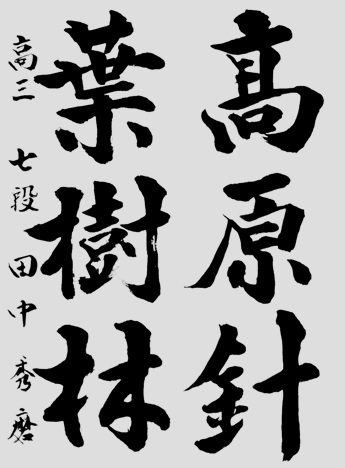 高原針
葉樹林
高三 七段 田中秀磨